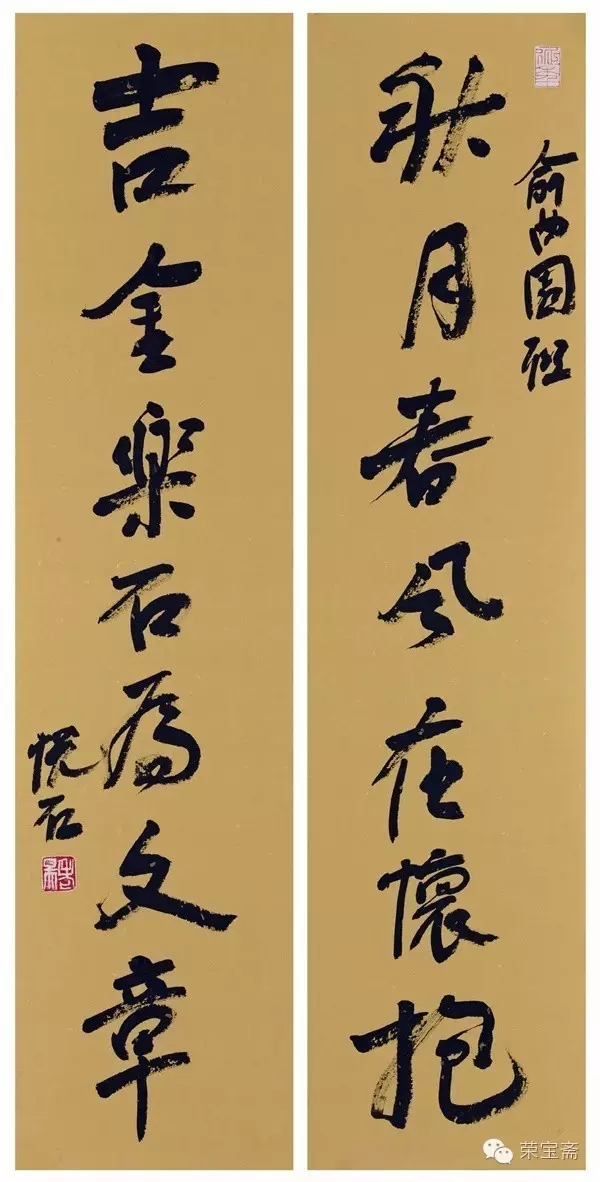 俞曲园联
秋月春风在懷抱
吉金樂石為文章
悦石
荣宝斋